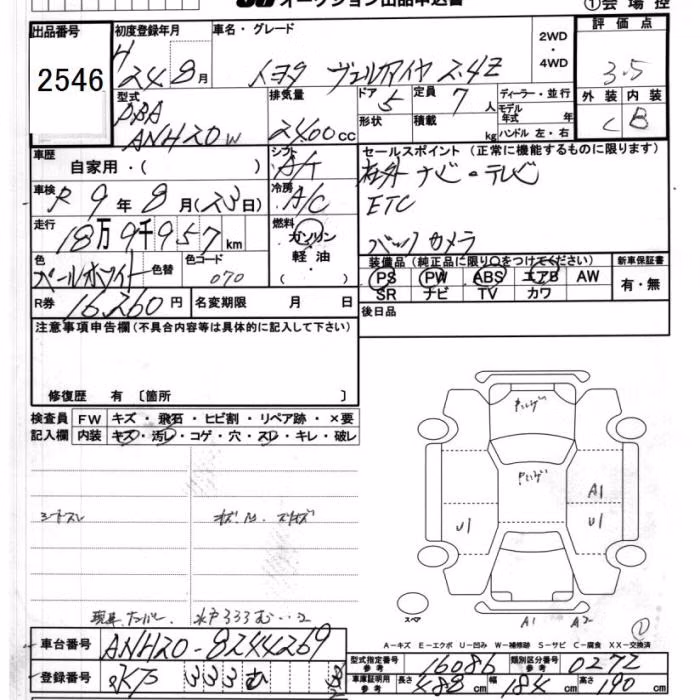 オークション出品申込書 ①会場控
出品番号 初度登録年月 車名・グレード 2WD・4WD 評価点
2546
H 24 8月 トヨタ ヴェルファイヤ 2.4Z 3.5
型式 排気量 ドア 定員 ディーラー・並行 外装 内装
DBA ANH20W 2400cc 5 7人 モデル年式 年 C B
形状 積載 kg ハンドル 左・右
車歴 シフト セールスポイント (正常に機能するものに限ります)
自家用・( ) A/T 社外 ナビ・テレビ
車検 冷房
R9年8月(23日) A/C ETC
走行 燃料
18万9千957km ガソリン バックカメラ
軽油・( )
色 色替 色コード 装備品(純正品に限り○をつけてください) 新車保証書
パールホワイト 070 PS PW ABS エアB AW 有・無
SR ナビ TV カワ
R券 16,260円 名変期限 月 日
後日品
注意事項申告欄(不具合内容等は具体的に記入して下さい)
修復歴 有〔箇所 〕
検査員 FW キズ・飛石・ヒビ割・リペア跡・×要
記入欄 内装 キズ・汚レ・コゲ・穴・スレ・キレ・破レ
シートスレ
A1
U1 U1
現車ナンバー. 水戸333む‥2
スペア
A1 A2
A-キズ E-エクボ U-凹み W-補修跡 S-サビ C-腐食 XX-交換済
車台番号 ANH20-8244269
型式指定番号 参考 16086 類別区分番号 参考 0272
登録番号 水戸 333 む
車庫証明用 参考 長さ 488cm 幅 184cm 高さ 190cm